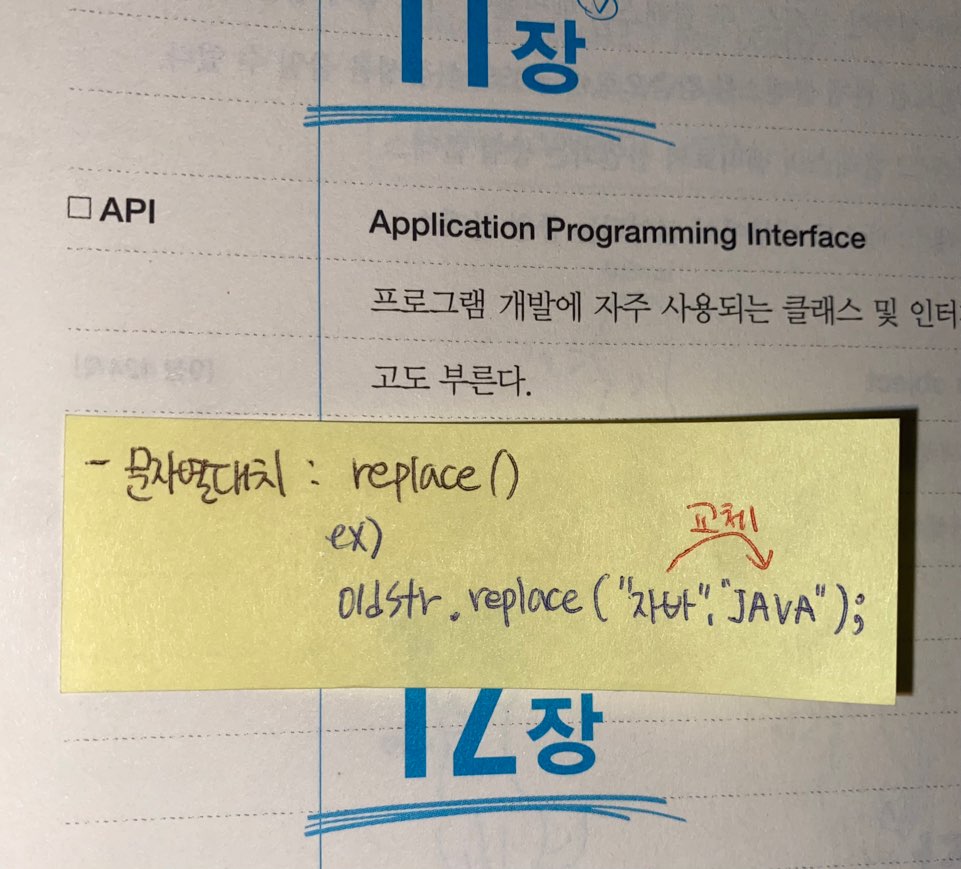 11장
□ API
Application Programming Interface
프로그램 개발에 자주 사용되는 클래스 및
고도 부른다.
- 문자열대치 : replace()
ex)
교체
oldstr.replace("자바","JAVA");
12장